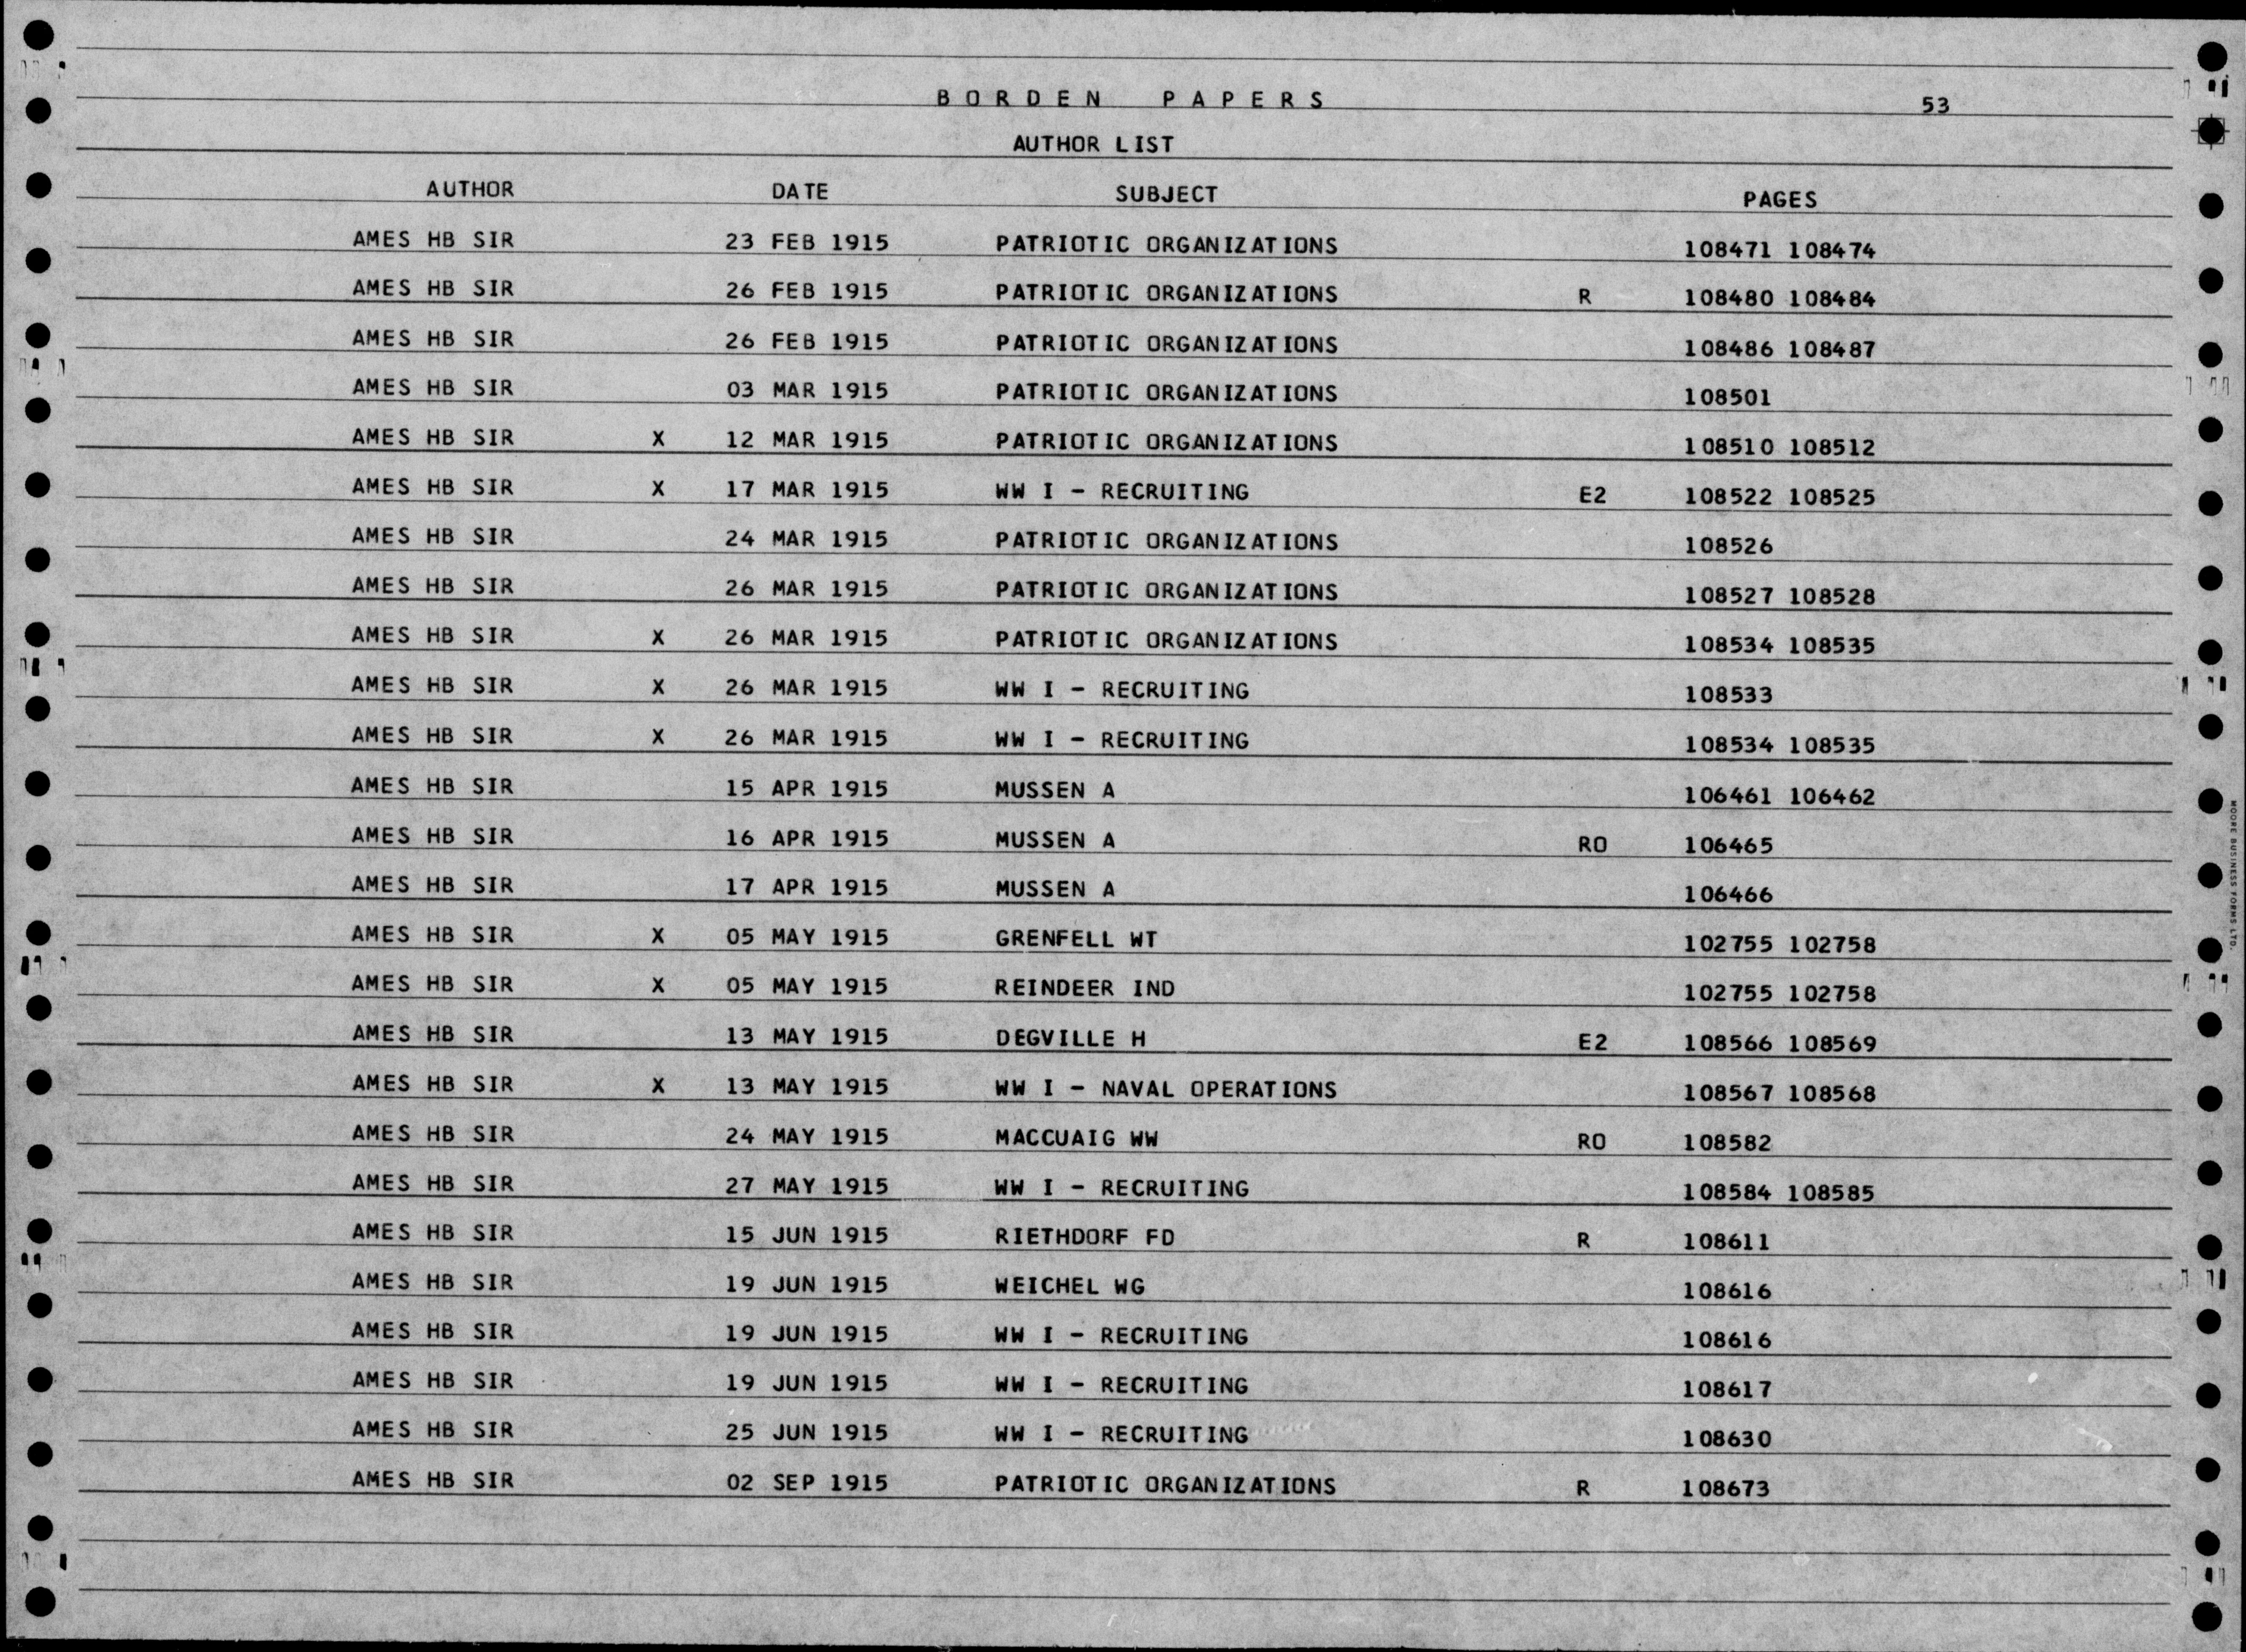 BORDEN PAPERS 53
AUTHOR LIST
AUTHOR DATE SUBJECT PAGES
AMES HB SIR 23 FEB 1915 PATRIOTIC ORGANIZATIONS 108471 108474
AMES HB SIR 26 FEB 1915 PATRIOTIC ORGANIZATIONS R 108480 108484
AMES HB SIR 26 FEB 1915 PATRIOTIC ORGANIZATIONS 108486 108487
AMES HB SIR 03 MAR 1915 PATRIOTIC ORGANIZATIONS 108501
AMES HB SIR X 12 MAR 1915 PATRIOTIC ORGANIZATIONS 108510 108512
AMES HB SIR X 17 MAR 1915 WW I - RECRUITING E2 108522 108525
AMES HB SIR 24 MAR 1915 PATRIOTIC ORGANIZATIONS 108526
AMES HB SIR 26 MAR 1915 PATRIOTIC ORGANIZATIONS 108527 108528
AMES HB SIR X 26 MAR 1915 PATRIOTIC ORGANIZATIONS 108534 108535
AMES HB SIR X 26 MAR 1915 WW I - RECRUITING 108533
AMES HB SIR X 26 MAR 1915 WW I - RECRUITING 108534 108535
AMES HB SIR 15 APR 1915 MUSSEN A 106461 106462
AMES HB SIR 16 APR 1915 MUSSEN A RO 106465
AMES HB SIR 17 APR 1915 MUSSEN A 106466
AMES HB SIR X 05 MAY 1915 GRENFELL WT 102755 102758
AMES HB SIR X 05 MAY 1915 REINDEER IND 102755 102758
AMES HB SIR 13 MAY 1915 DEGVILLE H E2 108566 108569
AMES HB SIR X 13 MAY 1915 WW I - NAVAL OPERATIONS 108567 108568
AMES HB SIR 24 MAY 1915 MACCUAIG WW RO 108582
AMES HB SIR 27 MAY 1915 WW I - RECRUITING 108584 108585
AMES HB SIR 15 JUN 1915 RIETHDORF FD R 108611
AMES HB SIR 19 JUN 1915 WEICHEL WG 108616
AMES HB SIR 19 JUN 1915 WW I - RECRUITING 108616
AMES HB SIR 19 JUN 1915 WW I - RECRUITING 108617
AMES HB SIR 25 JUN 1915 WW I - RECRUITING 108630
AMES HB SIR 02 SEP 1915 PATRIOTIC ORGANIZATIONS R 108673
MOORE BUSINESS FORMS LTD.